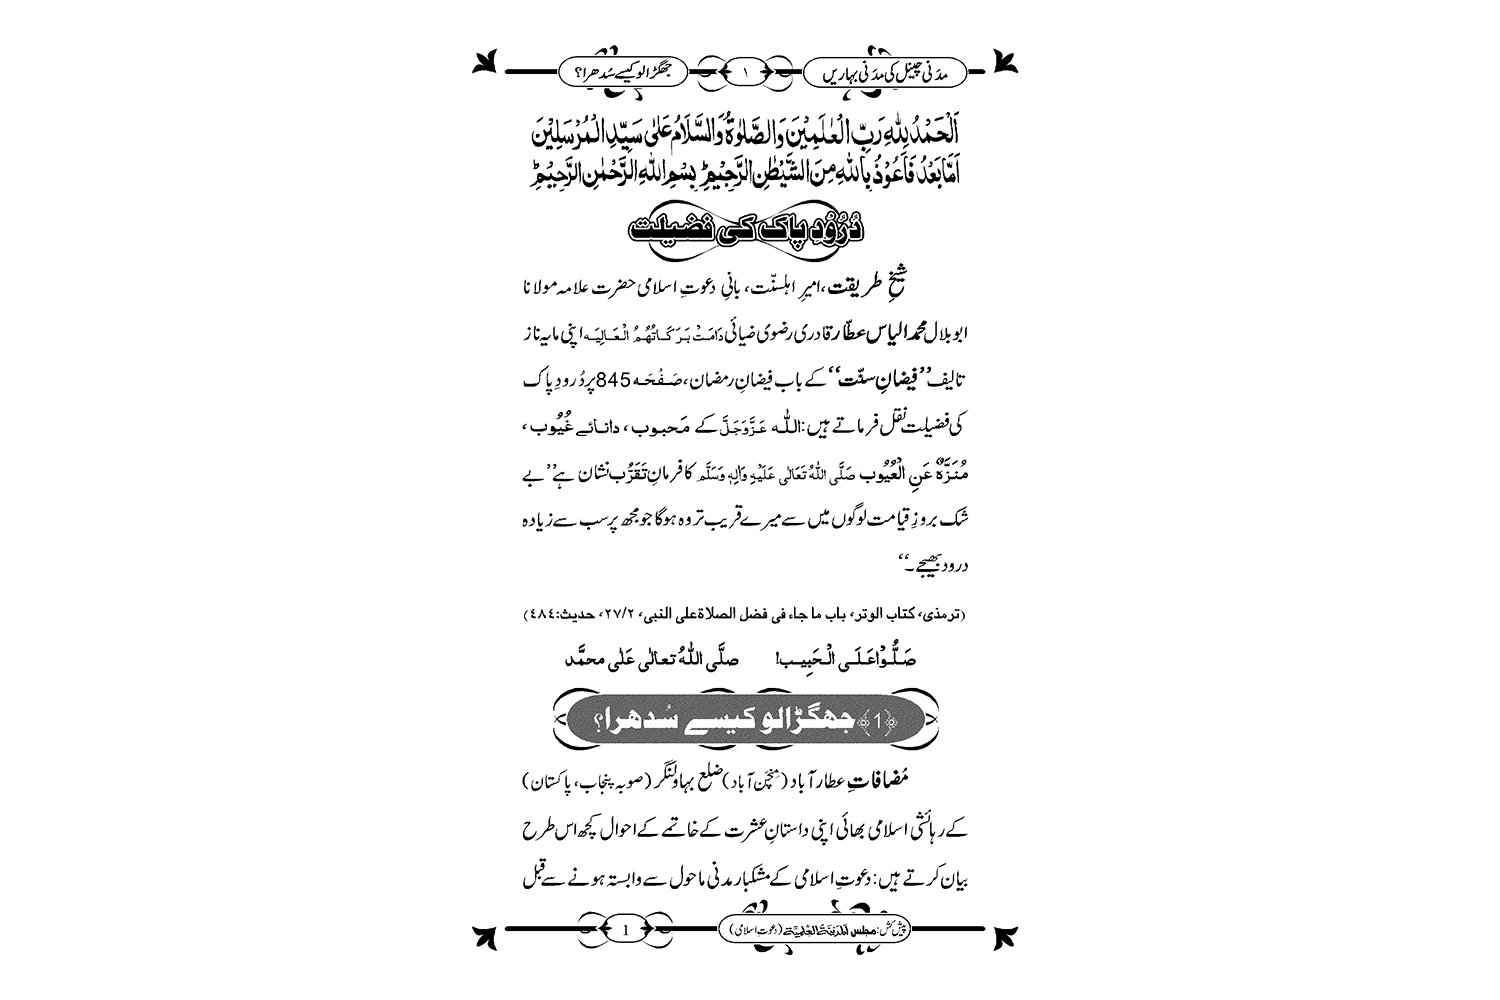 مدَنی چینل کی مدَنی بہاریں ۱ جھگڑالو کیسے سُدھرا؟
اَلْحَمْدُ لِلّٰهِ رَبِّ الْعٰلَمِیْنَ وَالصَّلٰوةُ وَالسَّلَامُ عَلٰی سَیِّدِ الْمُرْسَلِیْنَ
اَمَّا بَعْدُ فَاَعُوْذُ بِاللّٰهِ مِنَ الشَّیْطٰنِ الرَّجِیْمِ ؕ بِسْمِ اللّٰهِ الرَّحْمٰنِ الرَّحِیْمِ ؕ
دُرُوْدِ پاک کی فضیلت
شیخِ طریقت، امیرِ اہلسنّت، بانیِ دعوتِ اسلامی حضرت علامہ مولانا
ابو بلال محمد الیاس عطّار قادری رضوی ضیائی دَامَتْ بَرَکَاتُهُمُ الْعَالِیَہ اپنی مایہ ناز
تالیف ’’فیضانِ سنّت‘‘ کے باب فیضانِ رمضان، صَفْحَہ 845 پر دُرودِ پاک
کی فضیلت نقل فرماتے ہیں: اللّٰہ عَزَّوَجَلَّ کے مَحبوب، دانائے غُیُوب،
مُنَزَّہٌ عَنِ الْعُیُوب صَلَّی اللّٰهُ تَعَالٰی عَلَیْہِ وَاٰلِہٖ وَسَلَّم کا فرمانِ تَقَرُّب نشان ہے ’’بے
شک بروزِ قیامت لوگوں میں سے میرے قریب تر وہ ہوگا جو مجھ پر سب سے زیادہ
درود بھیجے۔‘‘
(ترمذی، کتاب الوتر، باب ما جاء فی فضل الصلاة علی النبی، ۲۷/۲، حدیث:۴۸۴)
صَلُّوْا عَلَی الْحَبِیب! صلَّی اللّٰهُ تعالٰی عَلٰی محمَّد
﴿1﴾ جھگڑالو کیسے سُدھرا؟
مُضافاتِ عطار آباد (منچن آباد) ضلع بہاولنگر (صوبہ پنجاب، پاکستان)
کے رہائشی اسلامی بھائی اپنی داستانِ عشرت کے خاتمے کے احوال کچھ اس طرح
بیان کرتے ہیں: دعوتِ اسلامی کے مشکبار مدنی ماحول سے وابستہ ہونے سے قبل
پیش کش: مجلس المدینۃ العلمیۃ (دعوتِ اسلامی) 1